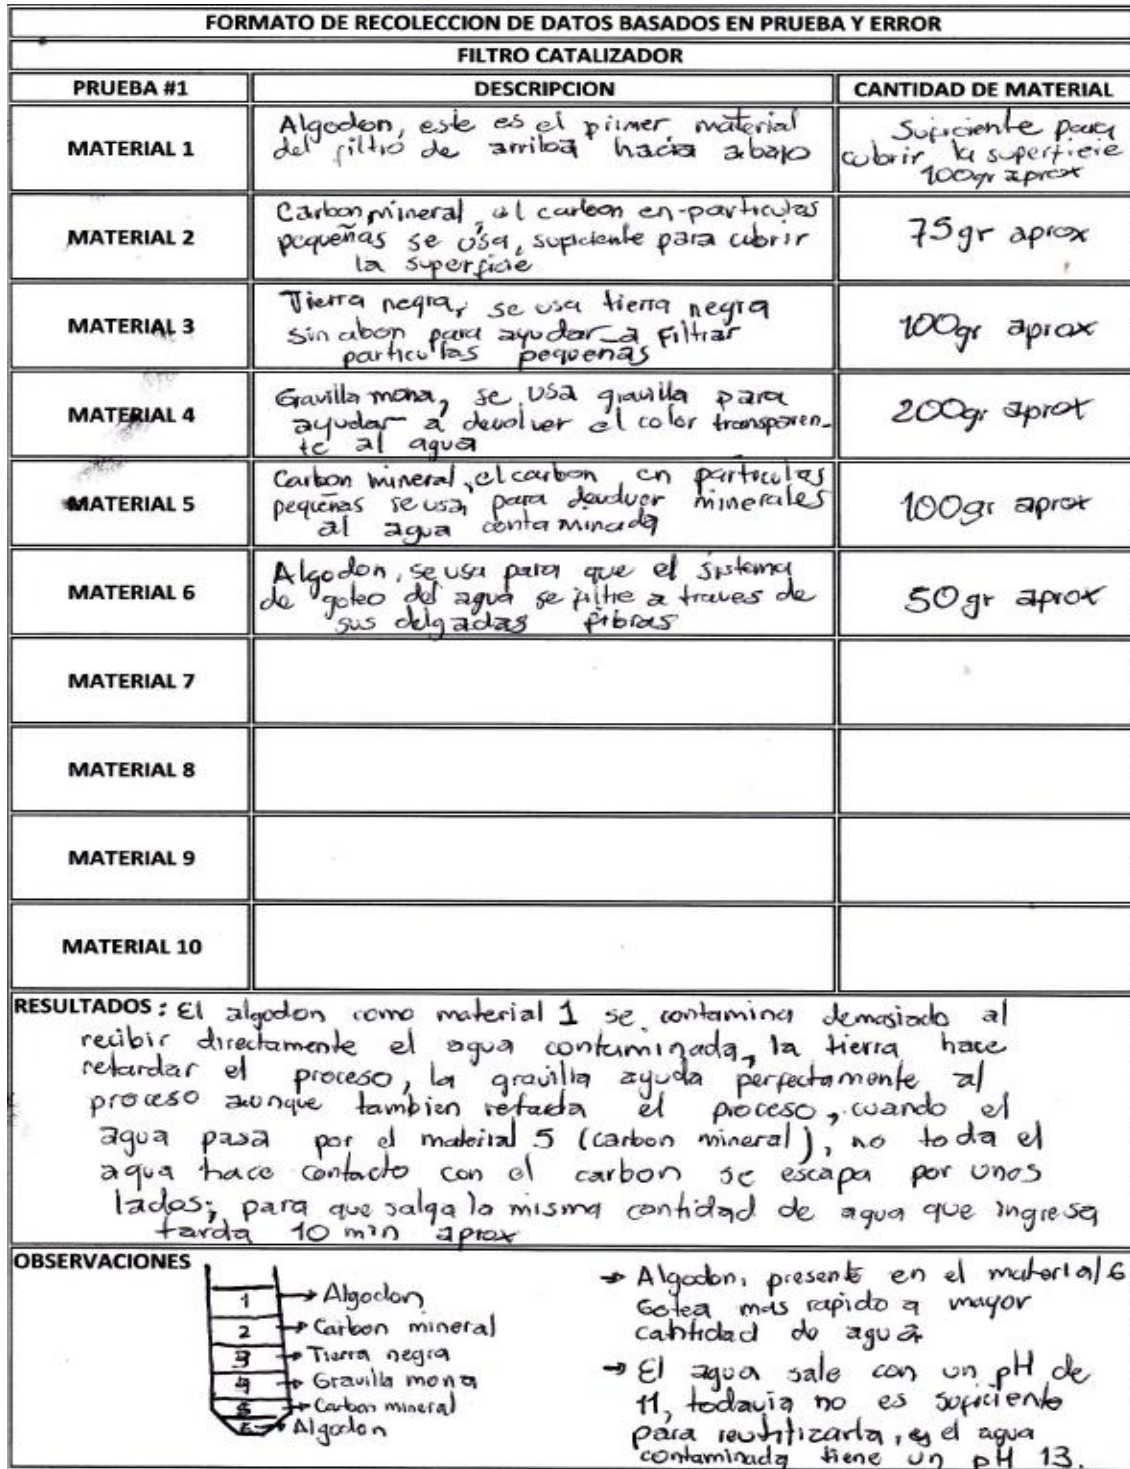 FORMATO DE RECOLECCION DE DATOS BASADOS EN PRUEBA Y ERROR
FILTRO CATALIZADOR
PRUEBA #1 DESCRIPCION CANTIDAD DE MATERIAL
MATERIAL 1
Algodon, este es el primer material
del filtro de arriba hacia abajo
Suficiente para
cubrir la superficie
100gr aprox
MATERIAL 2
Carbon mineral, el carbon en particulas
pequeñas se usa, suficiente para cubrir
la superficie
75gr aprox
MATERIAL 3
Tierra negra, se usa tierra negra
sin abon para ayudar a Filtrar
particulas pequeñas
100gr aprox
MATERIAL 4
Gravilla mona, se usa gravilla para
ayudar a devolver el color transparen-
te al agua
200gr aprox
MATERIAL 5
Carbon mineral, el carbon en particulas
pequeñas se usa, para devolver minerales
al agua contaminada
100gr aprox
MATERIAL 6
Algodon, se usa para que el sistema
de goteo del agua se filtre a traves de
sus delgadas fibras
50gr aprox
MATERIAL 7
MATERIAL 8
MATERIAL 9
MATERIAL 10
RESULTADOS: El algodon como material 1 se contamina demasiado al
recibir directamente el agua contaminada, la tierra hace
retardar el proceso, la gravilla ayuda perfectamente al
proceso aunque tambien retarda el proceso, cuando el
agua pasa por el material 5 (carbon mineral), no toda el
agua hace contacto con el carbon se escapa por unos
lados; para que salga la misma cantidad de agua que ingresa
tarda 10 min aprox
OBSERVACIONES
1 Algodon
2 Carbon mineral
3 Tierra negra
4 Gravilla mona
5 Carbon mineral
6 Algodon
→ Algodon, presente en el material 6
Gotea mas rapido a mayor
cantidad de agua
→ El agua sale con un pH de
11, todavia no es suficiente
para reutilizarla, el agua
contaminada tiene un pH 13.